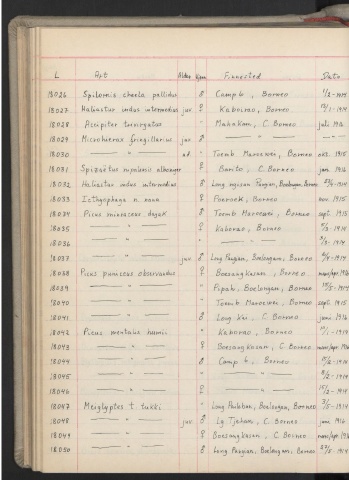 L Art Alder Kjønn Finnested Dato
18026 Spilornis cheela pallidus ♂ Camp 6, Borneo 1/2-1914
18027 Haliastur indus intermedius juv. ♀ Kaboirao, Borneo 1914
18028 Accipiter trivirgatus " Mahakam, C. Borneo juli 1916
18029 Microhierax fringillarius juv. ♂ — " — —
18030 — " — ad " Toemb Maroewei, Borneo okt. 1915
18031 Spizaëtus nipalensis ♀ Barito, C. Borneo jan. 1916
18032 Haliastur indus intermedius ♂ Long Borneo 1914
18033 Icthyophaga n. nana ♀ Borneo nov. 1915
18034 Picus miniaceus dayak ♂ Toemb Maroewei, Borneo sept. 1915
18035 — " — ♀ Kaborao, Borneo 1914
18036 — " — " — " — 1914
18037 — " — juv. ♂ Long Pangian, Boelongan, Borneo 1914
18038 Picus puniceus observandus ♀ Boesangkasan, Borneo mars/apr. 1916
18039 — " — " Pipak, Boelongan, Borneo 1914
18040 — " — " Toemb Maroewei, Borneo sept. 1915
18041 — " — ♂ Long Kai, C. Borneo juni 1916
18042 Picus mentalis humii " Kaborao, Borneo 1914
18043 — " — ♀ Boesangkasan, C. Borneo mars/apr. 1916
18044 — " — ♂ Camp 6, Borneo 1914
18045 — " — " — " — 1914
18046 — " — ♀ — " — 1914
18047 Meiglyptes t. tukki " Long Boelongan, Borneo 1914
18048 — " — juv. ♂ Lg. Tjehan, C. Borneo juni 1916
18049 — " — ♀ Boesangkasan, C. Borneo mars/apr. 1916
18050 — " — ♂ Long Pangian, Boelongan, Borneo 1914